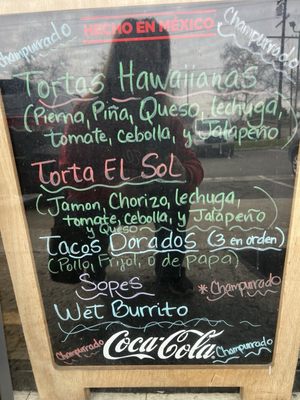 HECHO EN MÉXICO
Champurrado
Champurrado
Tortas Hawaiianas
(Pierna, Piña, Queso, lechuga,
tomate, cebolla, y Jalapeño)
Torta EL SOL
(Jamon, Chorizo, lechuga,
tomate, cebolla, y Jalapeño)
y Queso
Tacos Dorados (3 en orden)
(Pollo, Frijol, o de papa)
Sopes
*Champurrado
Wet Burrito
Champurrado
Coca-Cola
Champurrado